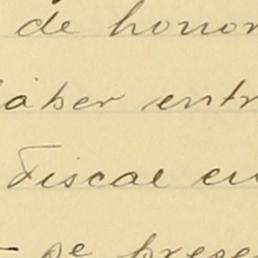 de honor
haber entr
Fiscal en
se prese